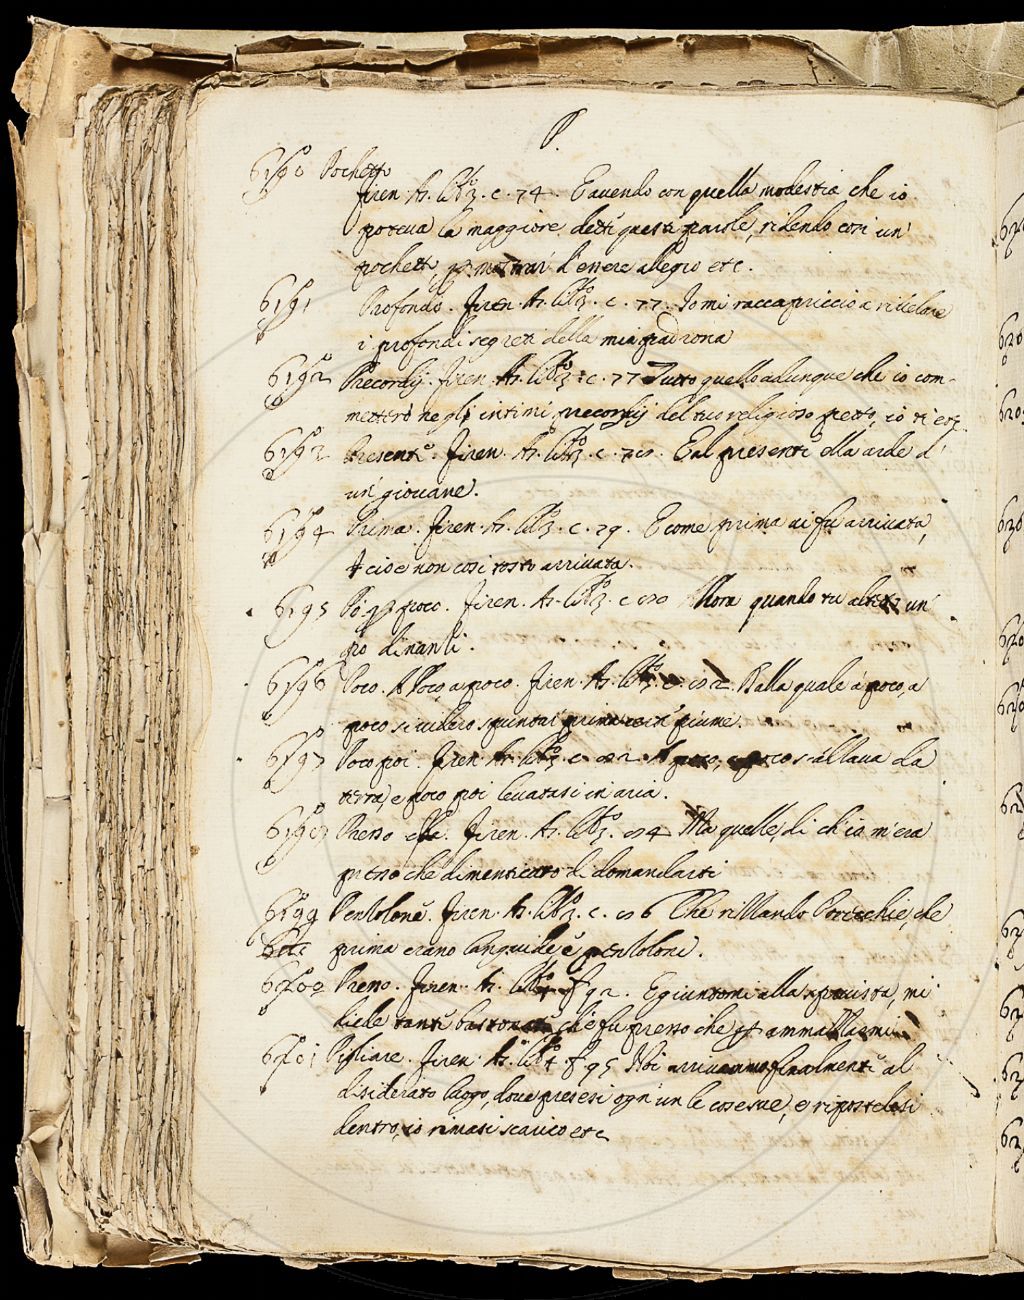 P.
6190 Pochetto
Firen. As. lib.º 3. c. 74. E avendo con quella modestia che io
poteva la maggiore, detti queste parole, ridendo così un'
pochetto, p mostrar' d'essere allegro etc.
6191 Profondo. Firen. As. lib.º 3. c. 77. Io mi raccapriccio a rivelare
i profondi segreti della mia padrona
6192 Precordij. Firen. As. lib.º 3. c. 77 Tutto quello adunque che io com-
metterò negli intimi precordij del tuo religioso petto, io ti etc.
6193 Presente. Firen. As. lib.º 3. c. 78. E al presente ella arde d'
un' giovane.
6194 Prima. Firen. As. lib. 3. c. 79. E come prima vi fu arrivata,
cioè non così tosto arrivata.
6195 Pò p poco. Firen. As. lib.º 3. c 80 Allora quando tu un'
pò dinanzi.
6196 Poco. A Poco, a poco. Firen. As. lib.º 3. c. 82. Dalla quale a poco, a
poco si videro spuntar piume.
6197 Poco poi. Firen. As. lib.º 3. c. 82. A poco, a poco s'alzava da
terra, e poco poi levatasi in aria.
6198 Presso che. Firen. As. lib.º 3. 84 Ma quelle, di ch'io m'era
presso che dimenticato di domandarti
6199 Pendolone. Firen. As. lib.º 3. c. 86 Che rizzando l'orecchie, che
prima erano languide e pendoloni.
6200 Presso. Firen. As. lib.º 4. f 92. E giuntomi alla sprovista, mi
diede tante bastonate, ch'e fu presso che p ammazzarmi
6201 Pigliare. Firen. As. lib.º 4. f 95 Noi arrivammo finalmente al
disiderato luogo, dove presesi ogn'un le cose sue, e ripostelesi
dentro, io rimasi scarico etc